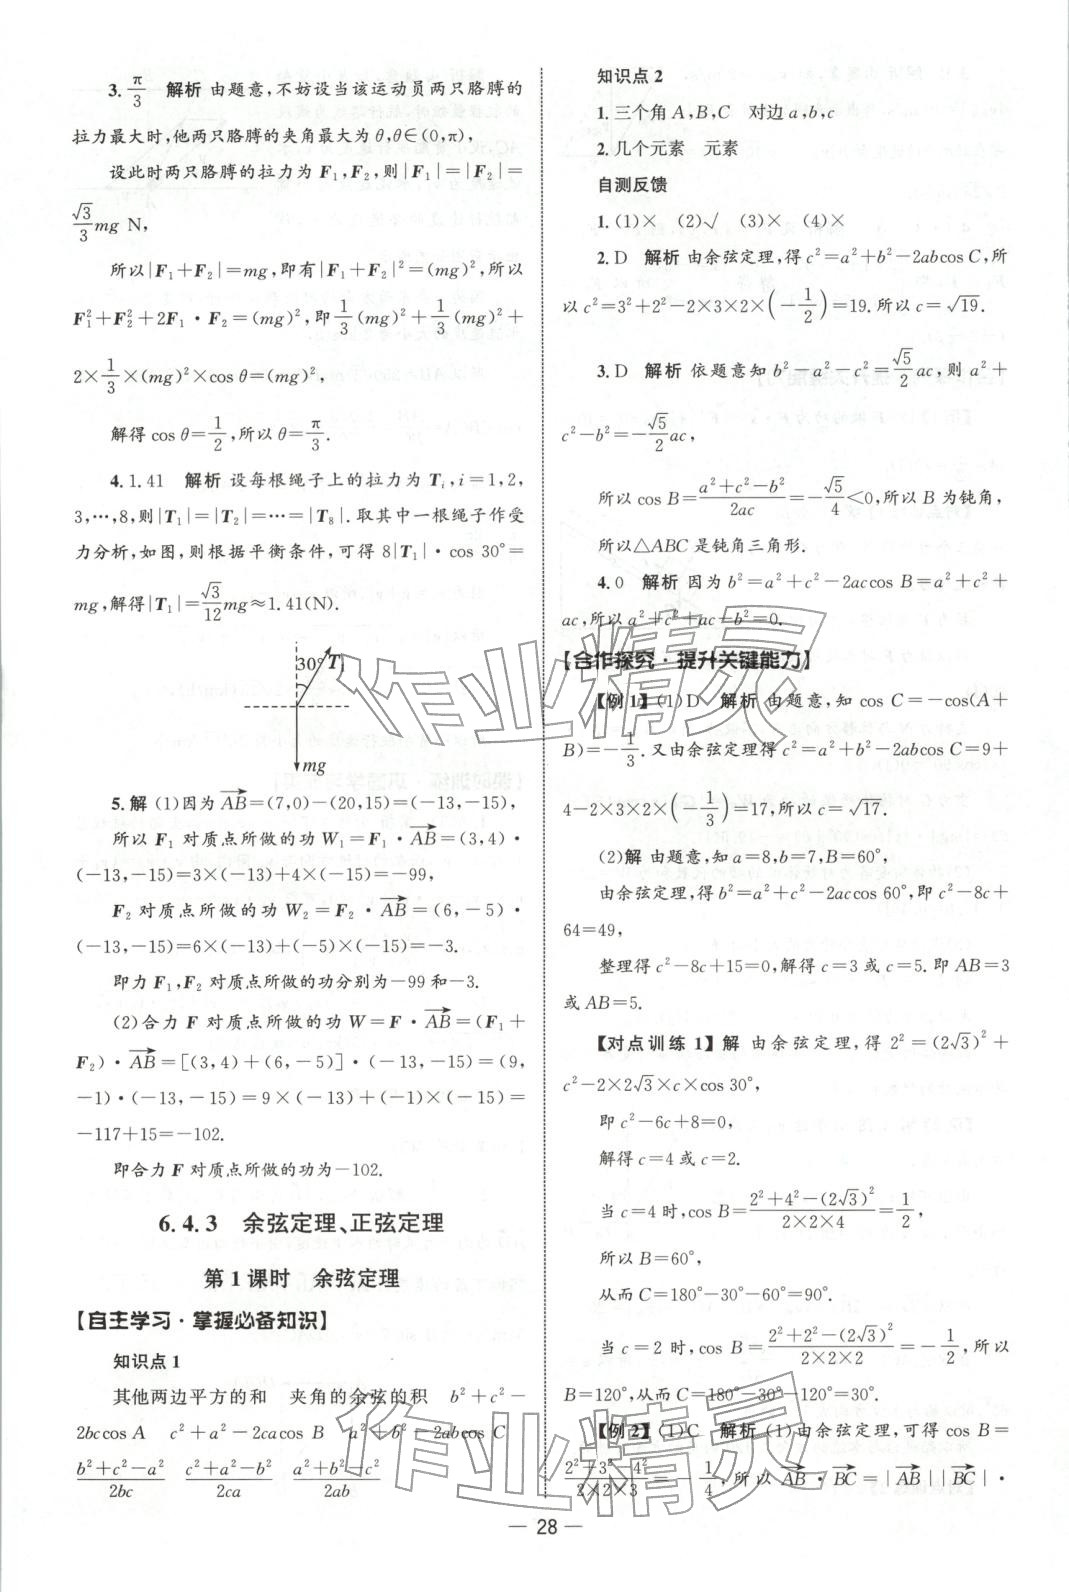 3. π/3　解析　由题意,不妨设当该运动员两只胳膊的
拉力最大时,他两只胳膊的夹角最大为θ,θ∈(0,π),
设此时两只胳膊的拉力为 F₁,F₂,则|F₁|=|F₂|=
√3/3 mg N,
所以|F₁+F₂|=mg,即有|F₁+F₂|²=(mg)²,所以
F₁²+F₂²+2F₁·F₂=(mg)²,即1/3(mg)²+1/3(mg)²+
2×1/3×(mg)²×cos θ=(mg)²,
解得cos θ=1/2,所以θ=π/3.
4. 1.41　解析　设每根绳子上的拉力为 Tᵢ,i=1,2,
3,…,8,则|T₁|=|T₂|=…=|T₈|.取其中一根绳子作受
力分析,如图,则根据平衡条件,可得 8|T₁|·cos 30°=
mg,解得|T₁|=√3/12 mg≈1.41(N).
30° T₁
mg
5. 解　(1)因为AB→=(7,0)-(20,15)=(-13,-15),
所以 F₁ 对质点所做的功 W₁=F₁·AB→=(3,4)·
(-13,-15)=3×(-13)+4×(-15)=-99,
F₂ 对质点所做的功 W₂=F₂·AB→=(6,-5)·
(-13,-15)=6×(-13)+(-5)×(-15)=-3.
即力 F₁,F₂ 对质点所做的功分别为-99和-3.
(2)合力 F 对质点所做的功 W=F·AB→=(F₁+
F₂)·AB→=[(3,4)+(6,-5)]·(-13,-15)=(9,
-1)·(-13,-15)=9×(-13)+(-1)×(-15)=
-117+15=-102.
即合力 F 对质点所做的功为-102.
6.4.3　余弦定理、正弦定理
第1课时　余弦定理
【自主学习·掌握必备知识】
知识点1
其他两边平方的和　夹角的余弦的积　b²+c²-
2bccos A　c²+a²-2cacos B　a²+b²-2abcos C
(b²+c²-a²)/2bc　(c²+a²-b²)/2ca　(a²+b²-c²)/2ab
知识点2
1.三个角A,B,C　对边a,b,c
2.几个元素　元素
自测反馈
1.(1)×　(2)√　(3)×　(4)×
2. D　解析　由余弦定理,得c²=a²+b²-2abcos C,所
以c²=3²+2²-2×3×2×(-1/2)=19.所以c=√19.
3. D　解析　依题意知b²-a²-c²=√5/2 ac,则a²+
c²-b²=-√5/2 ac,
所以cos B=(a²+c²-b²)/2ac=-√5/4<0,所以B为钝角,
所以△ABC是钝角三角形.
4. 0　解析　因为b²=a²+c²-2accos B=a²+c²+
ac,所以a²+c²+ac-b²=0.
【合作探究·提升关键能力】
【例1】(1)D　解析　由题意,知cos C=-cos(A+
B)=-1/3.又由余弦定理得c²=a²+b²-2abcos C=9+
4-2×3×2×(-1/3)=17,所以c=√17.
(2)解　由题意,知a=8,b=7,B=60°,
由余弦定理,得b²=a²+c²-2accos 60°,即c²-8c+
64=49,
整理得c²-8c+15=0,解得c=3或c=5.即AB=3
或AB=5.
【对点训练1】解　由余弦定理,得2²=(2√3)²+
c²-2×2√3×c×cos 30°,
即c²-6c+8=0,
解得c=4或c=2.
当c=4时,cos B=(2²+4²-(2√3)²)/(2×2×4)=1/2,
所以B=60°,
从而C=180°-30°-60°=90°.
当c=2时,cos B=(2²+2²-(2√3)²)/(2×2×2)=-1/2,所以
B=120°,从而C=180°-30°-120°=30°.
【例2】(1)C　解析　(1)由余弦定理,可得cos B=
(2²+3²-4²)/(2×2×3)=-1/4,所以AB→·BC→=|AB→||BC→|·
— 28 —
作业精灵
作业精灵